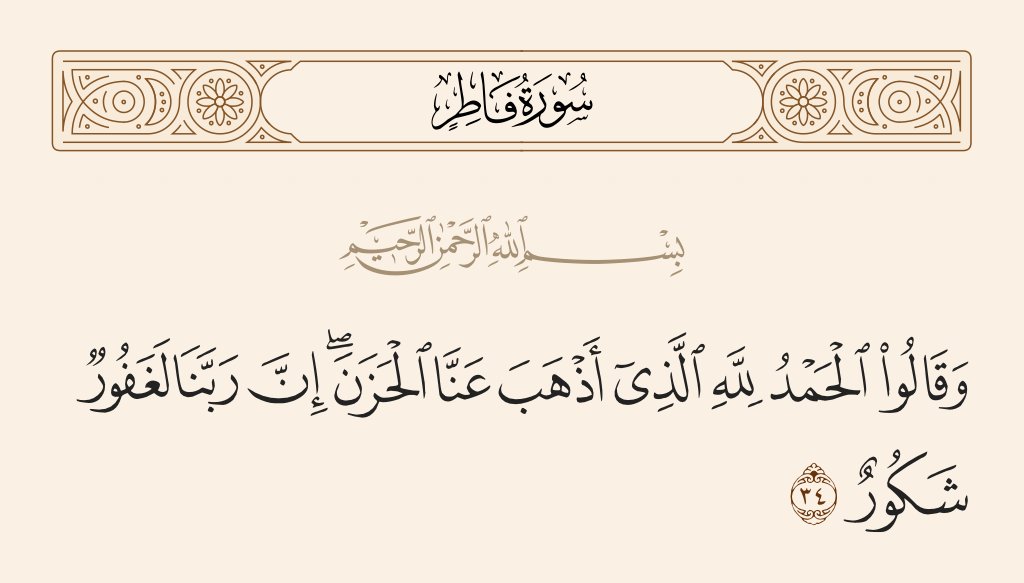 سُورَةُ فَاطِرٍ
بِسْمِ ٱللَّهِ ٱلرَّحْمَٰنِ ٱلرَّحِيمِ
وَقَالُوا۟ ٱلْحَمْدُ لِلَّهِ ٱلَّذِىٓ أَذْهَبَ عَنَّا ٱلْحَزَنَ ۖ إِنَّ رَبَّنَا لَغَفُورٌ
شَكُورٌ ٣٤